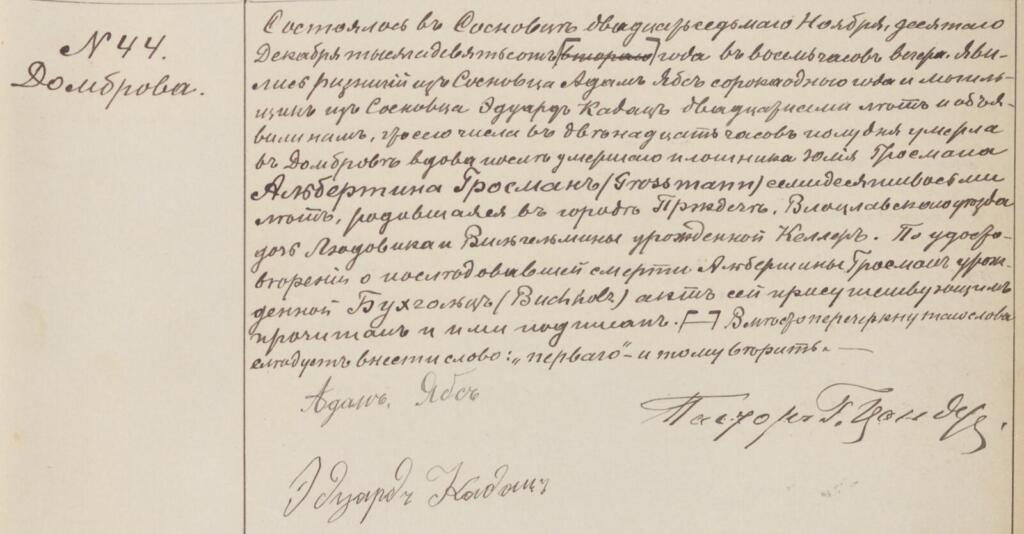 N 44.
Домброва.
Состоялось въ Сосновицѣ двадцать седьмаго Ноября, десятаго
Декабря тысяча девятьсотъ [втораго] года въ восемь часовъ вечера. Яви-
лись ризничій изъ Сосновца Адамъ Ябсъ сорока одного года и могиль-
щикъ изъ Сосновца Эдуардъ Кабацъ двадцати семи лѣтъ и объя-
вили намъ, что сего числа въ двѣнадцать часовъ полудня умерла
въ Домбровѣ вдова послѣ умершаго плотника Юлія Гросмана
Альбертина Гросманъ (Grossmann) семидесяти восьми
лѣтъ, родившаяся въ городѣ Пржедечъ, Влоцлавскаго уѣзда
дочь Людовика и Вильгельмины урожденной Келлеръ. По удосто-
вѣреніи о послѣдовавшей смерти Альбертины Гросманъ урож-
денной Бухгольцъ (Buchholz) актъ сей присутствующимъ
прочитанъ и ими подписанъ. [—] Вмѣсто перечеркнутаго слова
слѣдуетъ внести слово: „перваго" и тому вѣрить. —
Адамъ Ябсъ
Пасторъ Г. Цандеръ.
Эдуардъ Кабацъ